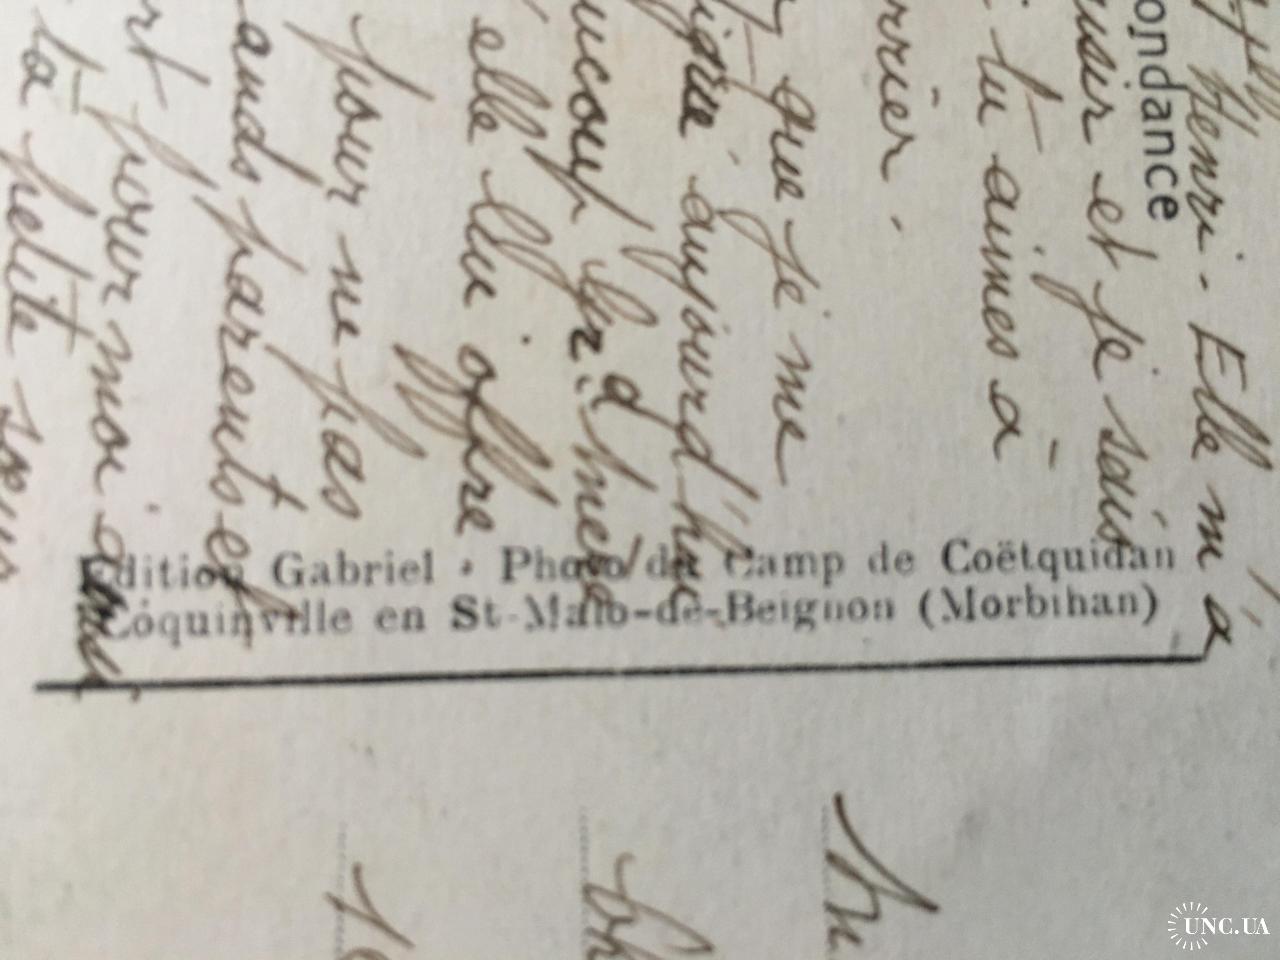 ondance
Henri. Elle m'a
et je sais
tu aimes à
rrier.
que je me
aujourd'hui
ucoup
elle lui offre
pour ne pas
ands parents et
rt pour moi
ta petite
Edition Gabriel · Photo du Camp de Coëtquidan
Coquinville en St-Malo-de-Beignon (Morbihan)
UNC.UA